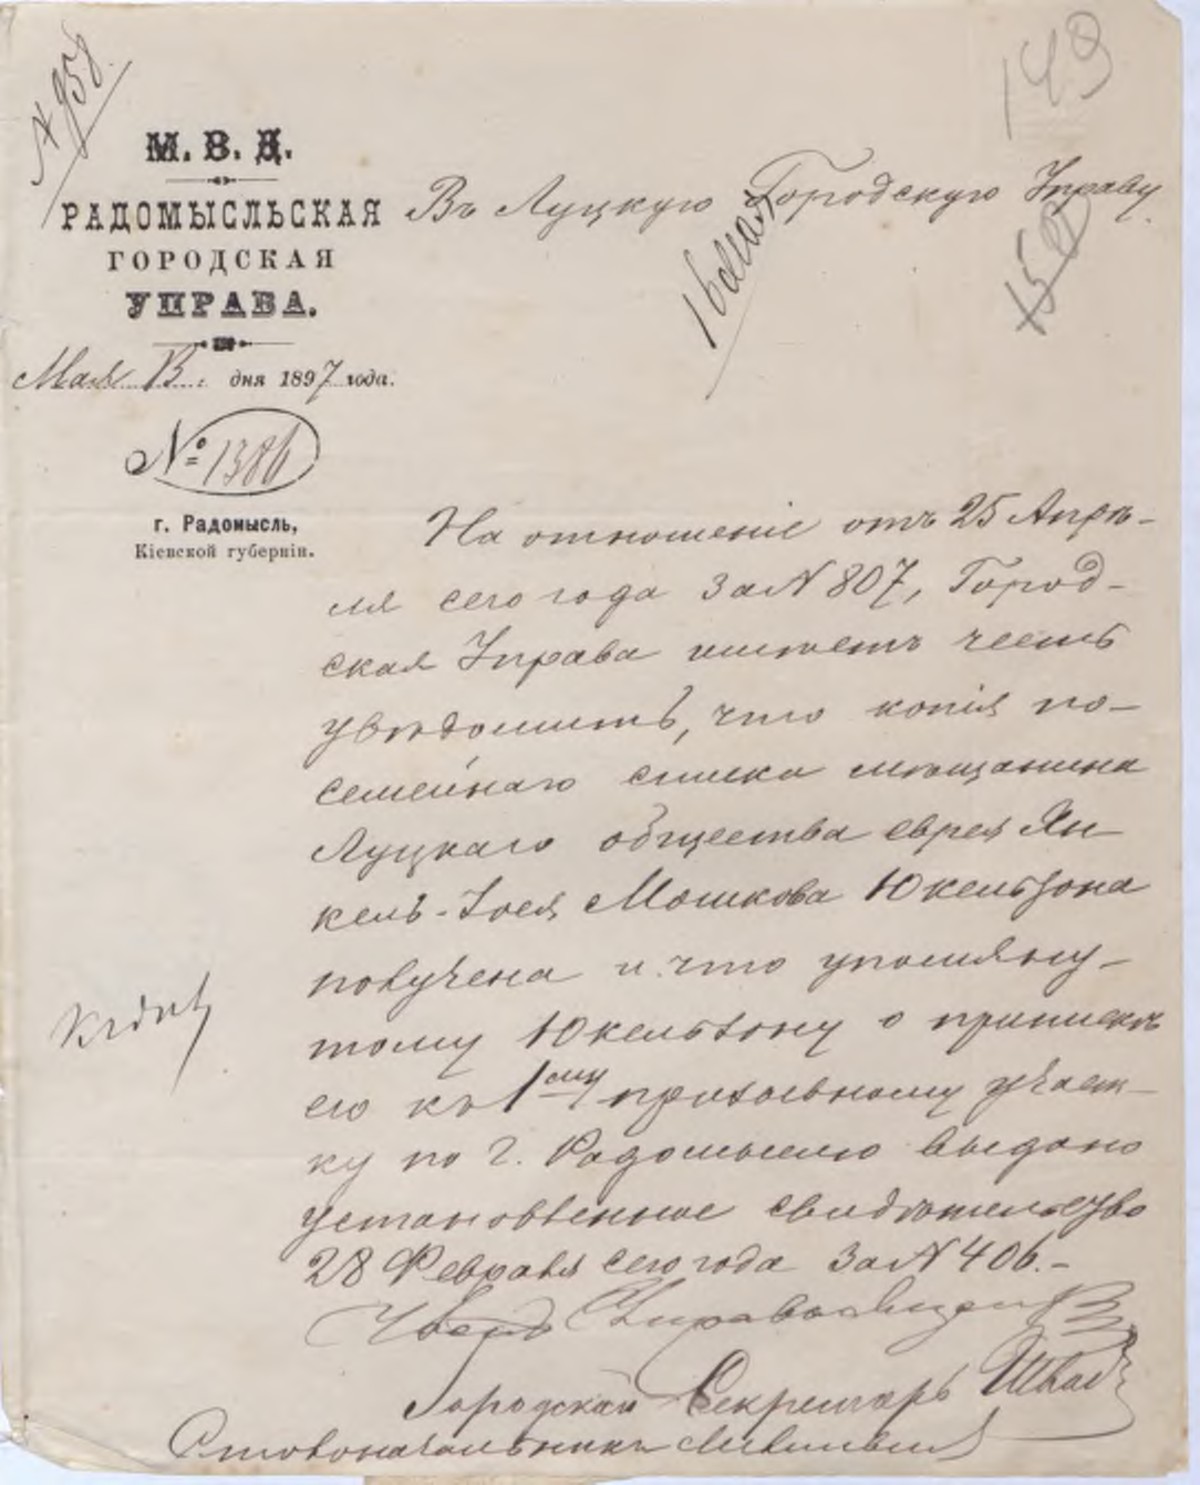 № 958
149
М. В. Д.
РАДОМЫСЛЬСКАЯ
ГОРОДСКАЯ
УПРАВА.
Мая 13. дня 1897 года.
№ 1386
г. Радомысль,
Кіевской губерніи.
Въ Луцкую Городскую Управу.
16 мая
150
На отношеніе отъ 25 Апрѣ-
ля сего года за N 807, Город-
ская Управа имѣетъ честь
увѣдомить, что копія по-
семейнаго списка мѣщанина
Луцкаго общества еврея Ян-
кель-Іося Мошкова Юкельзона
получена и что упомяну-
тому Юкельзону о припискѣ
его къ 1му призывному участ-
ку по г. Радомыслю выдано
установленное свидѣтельство
28 Февраля сего года за N 406.-
Членъ Управы
Городской Секретарь
Столоначальникъ